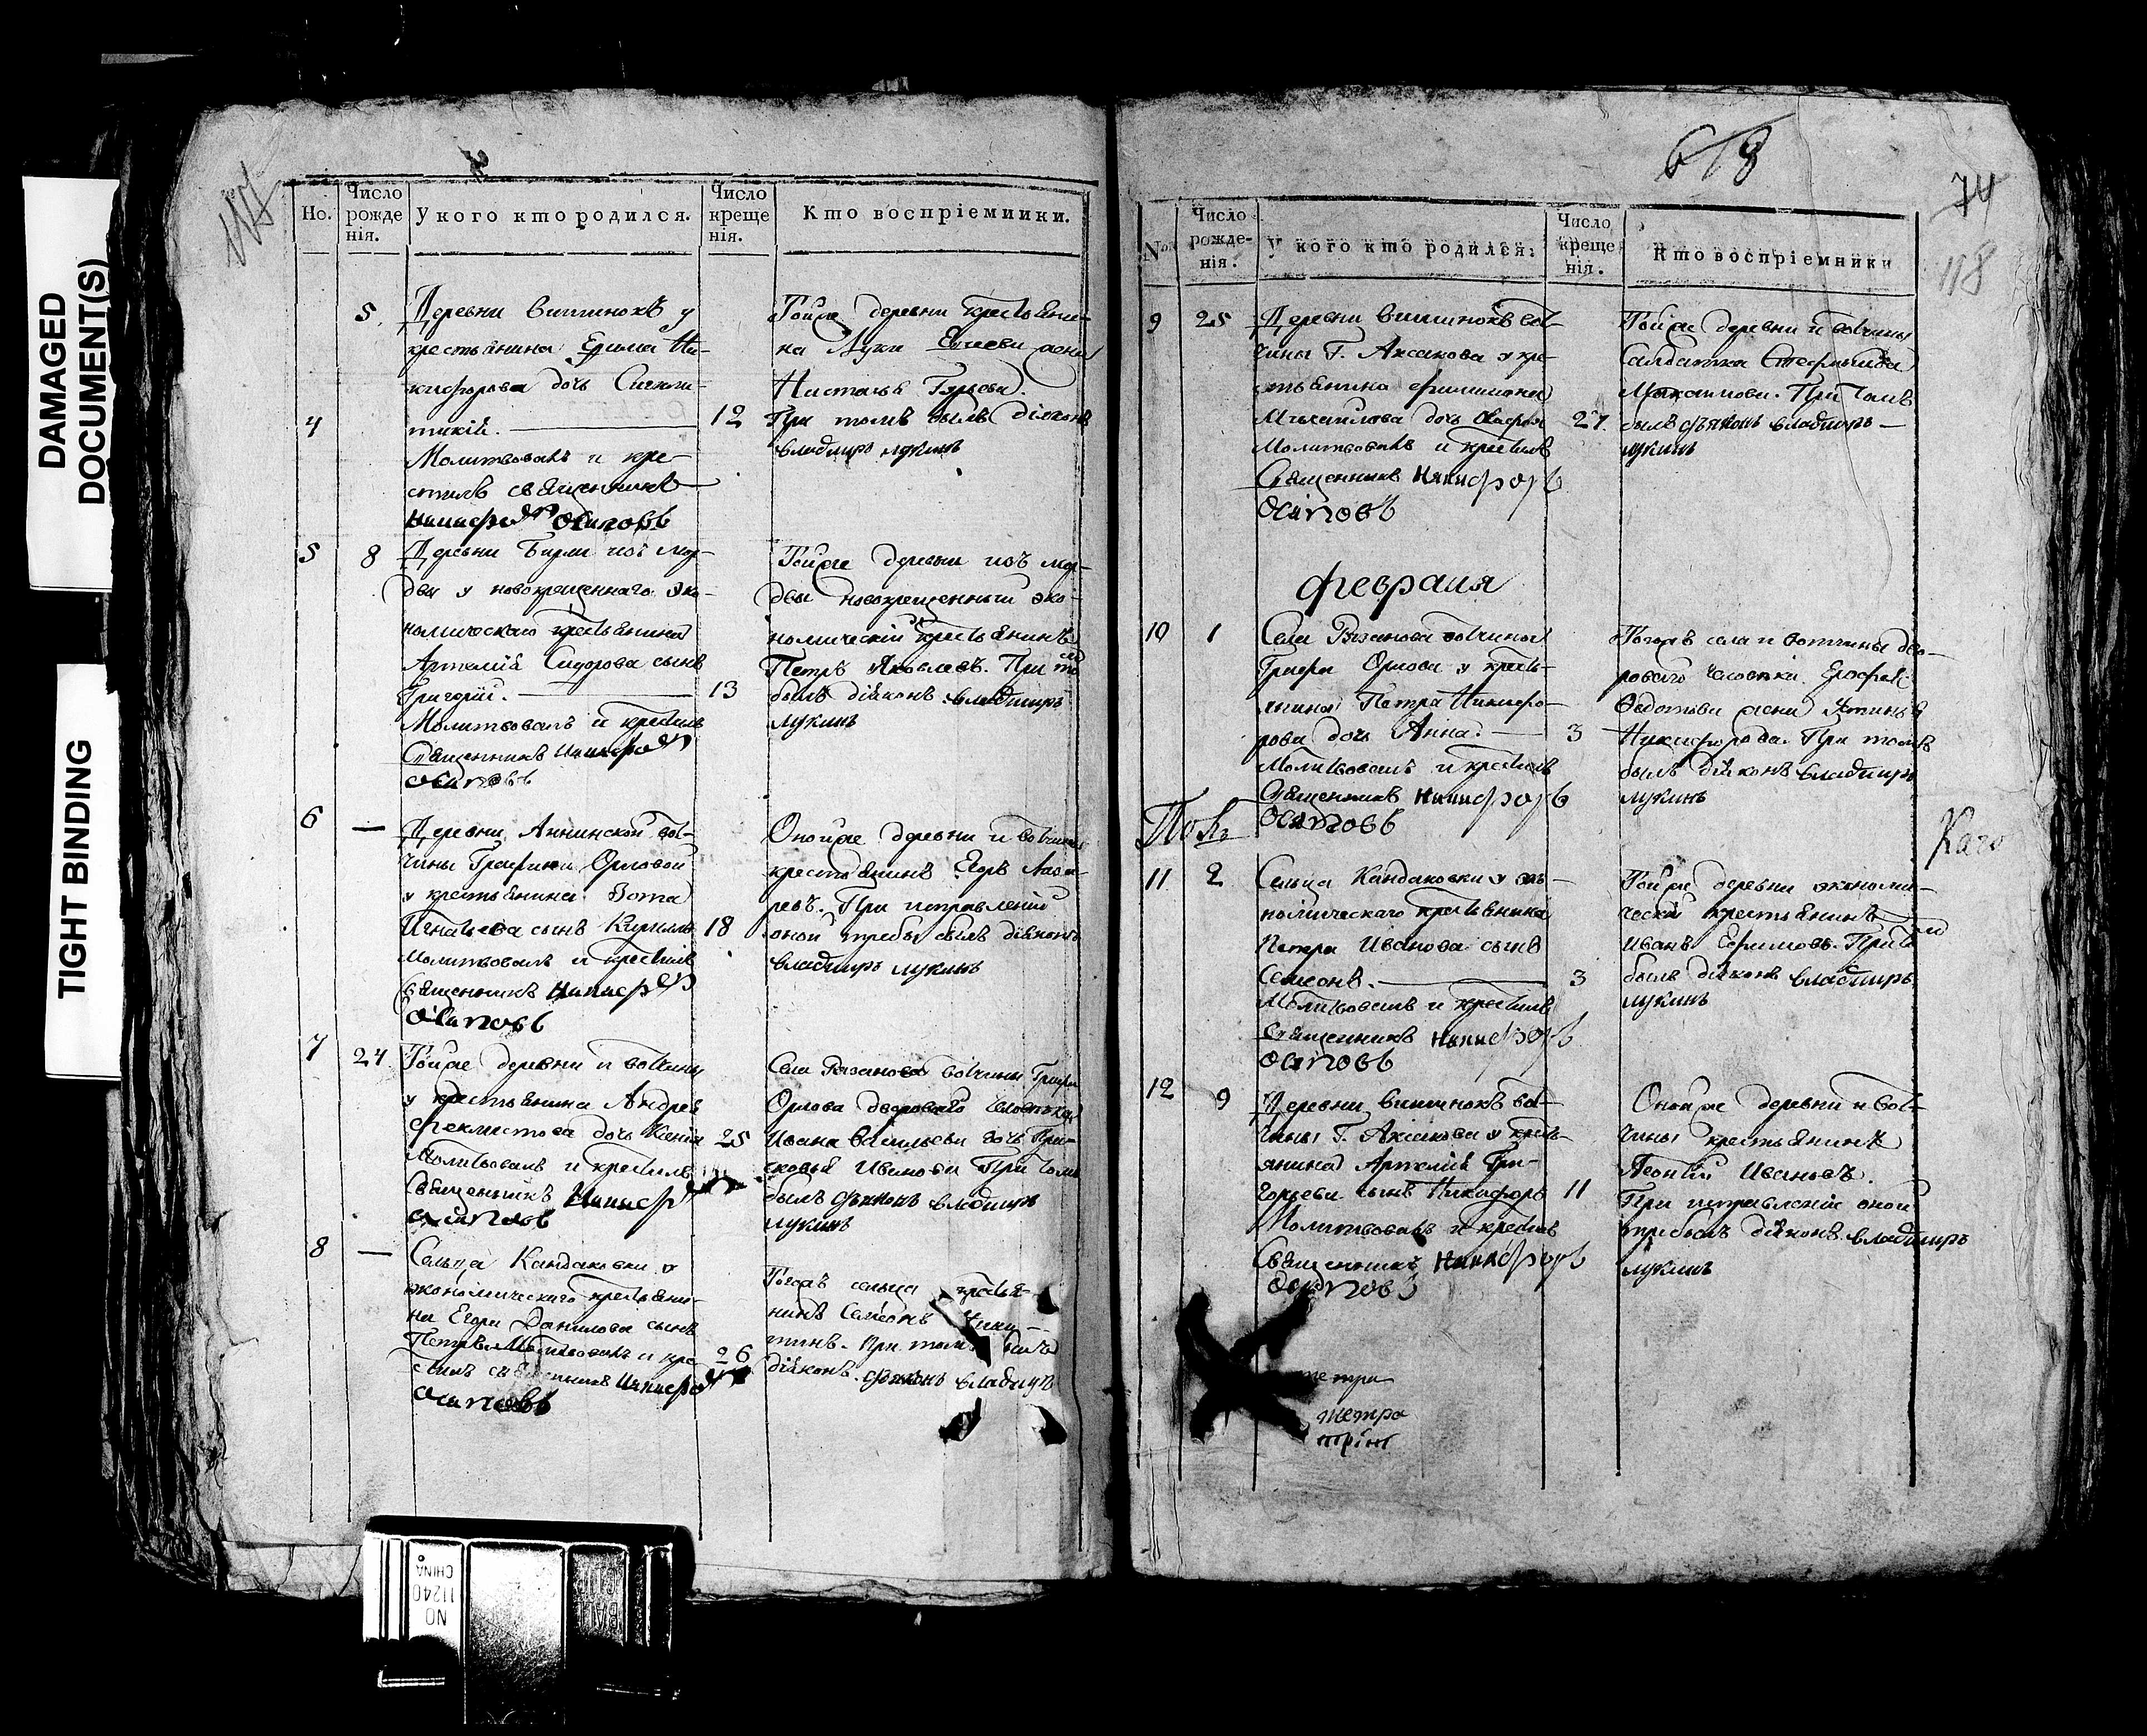 DAMAGED
DOCUMENT(S)
TIGHT BINDING
Но.
Число
рожде
нія.
У кого кто родился.
Число
креще
нія.
Кто воспріемники.
5.
Деревни Вишинокъ у
крестьянина Ефима Ни-
кифорова дочь
4
12
Молитвовалъ и кре-
стилъ священникъ
Никифоръ Осиповъ
Тойже деревни крестьяни-
на Луки жена
Настасья Гурьева.
При томъ былъ діаконъ
Владимиръ Лукинъ
5
8
Деревни Бирли изъ мор-
двы у новокрещеннаго эко-
номическаго крестьянина
Артемія Сидорова сынъ
Григорій.
13
Молитвовалъ и крестилъ
Священникъ Никифоръ
Осиповъ
Тойже деревни изъ мор-
двы новокрещенный эко-
номическій крестьянинъ
Петръ Яковлевъ. При томъ
былъ діаконъ Владимиръ
Лукинъ
6
—
Деревни Аннинской вот-
чины Графини Орловой
у крестьянина Зота
Игнатьева сынъ Кирилъ
18
Молитвовалъ и крестилъ
священникъ Никифоръ
Осиповъ
Онойже деревни и вотчины
крестьянинъ Егоръ Лаза-
ревъ. При исправленіи
оной требы былъ діаконъ
Владимиръ Лукинъ
7
24
Тойже деревни и вотчины
у крестьянина Андрея
Феклистова дочь Ксенія
25
Молитвовалъ и крестилъ
Священникъ Никифоръ
Осиповъ
Села Рязанова вотчины Графа
Орлова двороваго человека
Ивана Васильева дочь Пра-
сковья Иванова При томъ
былъ дьяконъ Владимиръ
Лукинъ
8
—
Сельца Кандаковки у
экономическаго крестьяни-
на Егора Данилова сынъ
Петръ. Молитвовалъ и кре-
26
стилъ священникъ Никифоръ
Осиповъ
Тогожъ сельца крестья-
нинъ Семенъ Ники-
тинъ. При томъ былъ
діаконъ. дьяконъ Владимиръ
618
74
118
No.
Число
рожде-
нія.
У кого кто родился:
Число
креще
нія.
Кто воспріемники
9
25
Деревни Вишинокъ вот-
чины Г. Аксакова у кре-
стьянина Филимона
Михаилова дочь
27
Молитвовалъ и крестилъ
Священникъ Никифоръ
Осиповъ
Тойже деревни и вотчины
Салдатка Стефанида
Максимова. При томъ
былъ дьяконъ Владимиръ
Лукинъ
Февраля
10
1
Села Рязанова вотчины
Графа Орлова у кресть-
янина Петра Никифо-
рова дочь Анна.
3
Молитвовалъ и крестилъ
Священникъ Никифоръ
Осиповъ
Тогожъ села и вотчины дво-
роваго человека Ерофея
Федотова жена Устинья
Никифорова. При томъ
былъ діаконъ Владимиръ
Лукинъ
11
2
Сельца Кандаковки у эко-
номическаго крестьянина
Петра Иванова сынъ
Семенъ.
3
Молитвовалъ и крестилъ
Священникъ Никифоръ
Осиповъ
Тойже деревни экономи-
ческій крестьянинъ
Иванъ Ефимовъ. При томъ
былъ діаконъ Владимиръ
Лукинъ
12
9
Деревни Вишинокъ вот-
чины Г. Аксакова у кресть-
янина Артемія Гри-
горьева сынъ Никифоръ
11
Молитвовалъ и крестилъ
Священникъ Никифоръ
Осиповъ
Онойже деревни и вот-
чины крестьянинъ
Леонтій Ивановъ.
При исправленіи оной
требы былъ діаконъ Владимиръ
Лукинъ
петра
NO
11240
CHINA